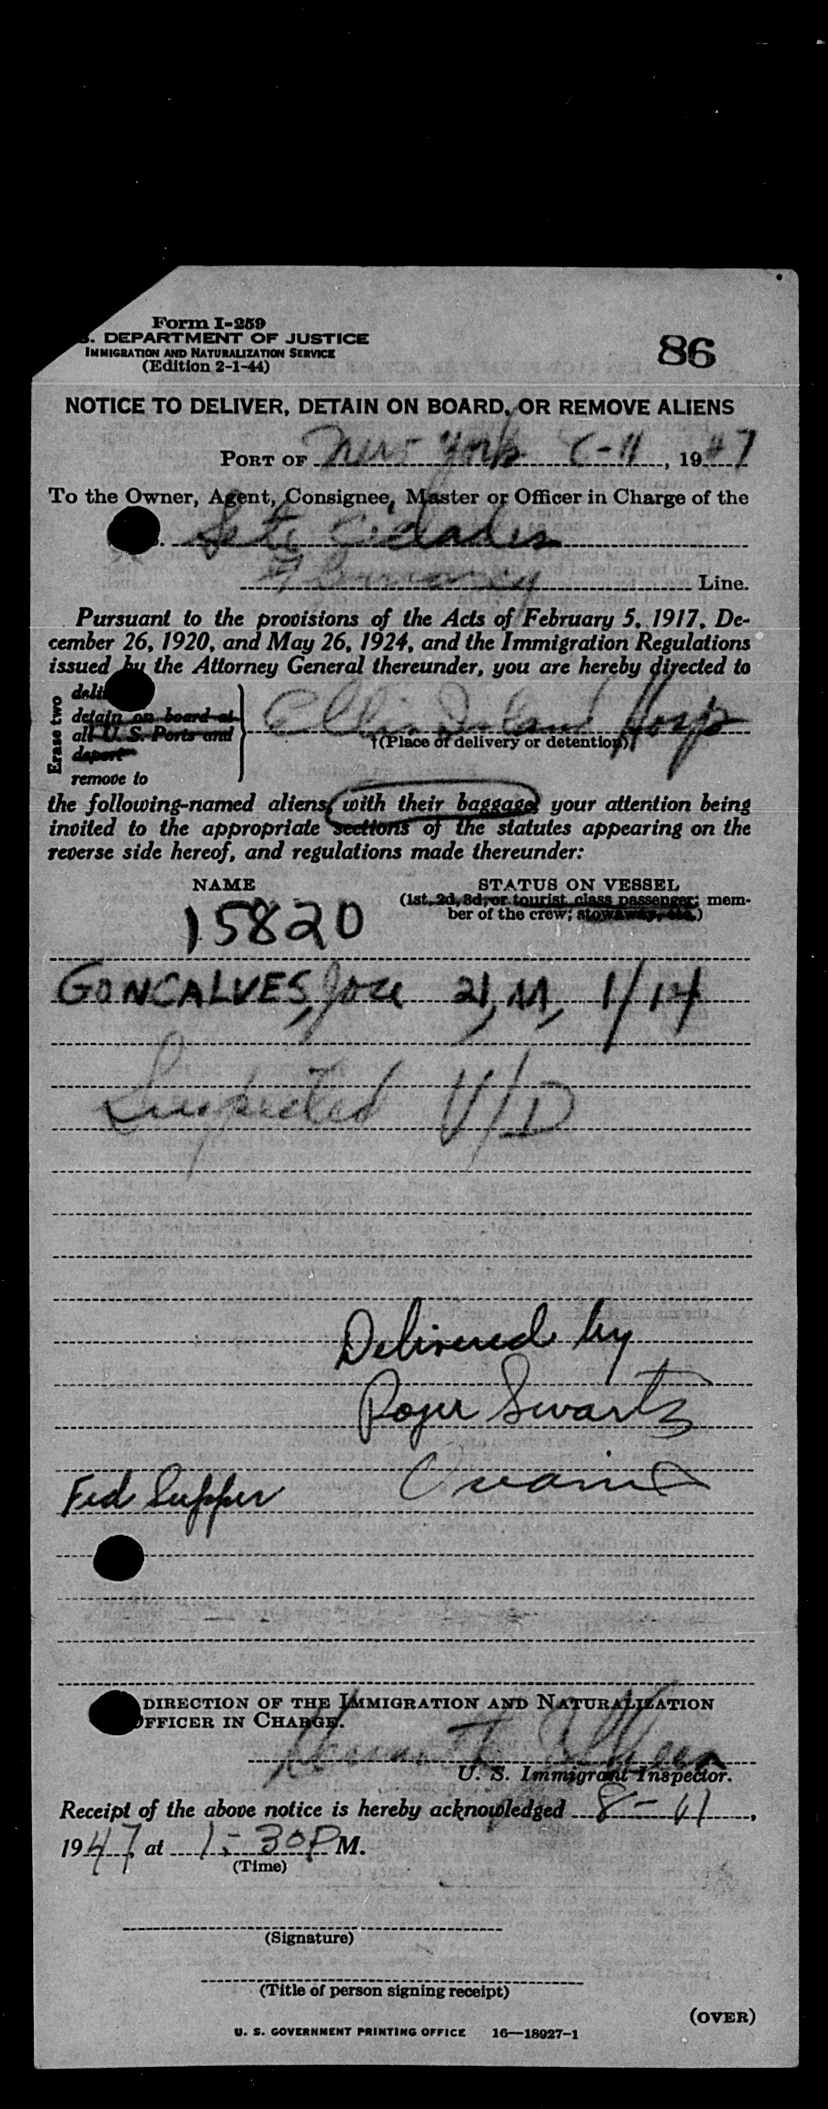 Form I-259
S. DEPARTMENT OF JUSTICE
IMMIGRATION AND NATURALIZATION SERVICE
(Edition 2-1-44)
86
NOTICE TO DELIVER, DETAIN ON BOARD, OR REMOVE ALIENS
PORT OF New York 8-11, 1947
To the Owner, Agent, Consignee, Master or Officer in Charge of the
Sete Cidades
Line.
Pursuant to the provisions of the Acts of February 5, 1917, De-
cember 26, 1920, and May 26, 1924, and the Immigration Regulations
issued by the Attorney General thereunder, you are hereby directed to
Erase two
deli
detain on board at
all U. S. Ports and
deport
remove to
Ellis Island Hosp
†(Place of delivery or detention)
the following-named aliens, with their baggage, your attention being
invited to the appropriate sections of the statutes appearing on the
reverse side hereof, and regulations made thereunder:
NAME
STATUS ON VESSEL
(1st, 2d, 3d, or tourist class passenger; mem-
ber of the crew; stowaway, etc.)
15820
GONCALVES, Jose 21, M, 1/14
Suspected V/D
Delivered by
Roger Swartz
Fed Supper
DIRECTION OF THE IMMIGRATION AND NATURALIZATION
OFFICER IN CHARGE.
U. S. Immigrant Inspector.
Receipt of the above notice is hereby acknowledged 8-11,
1947, at 1:30 P M.
(Time)
(Signature)
(Title of person signing receipt)
(OVER)
U. S. GOVERNMENT PRINTING OFFICE 16—18027-1